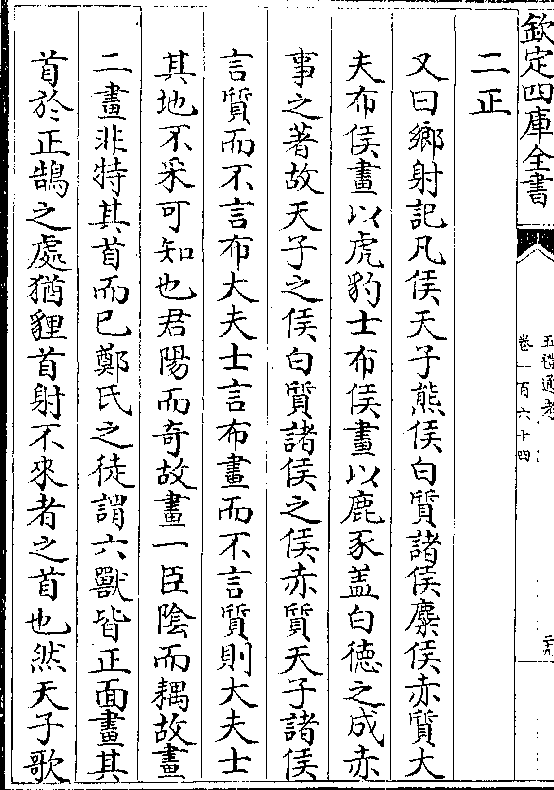 欽定四庫全書
五禮通考
卷一百六十四
二正
又曰鄉射記凡侯天子熊侯白質諸侯麋侯赤質大
夫布侯畫以虎豹士布侯畫以鹿豕盖白德之成赤
事之著故天子之侯白質諸侯之侯赤質天子諸侯
言質而不言布大夫士言布畫而不言質則大夫士
其地不采可知也君陽而奇故畫一臣陰而耦故畫
二畫非特其首而已鄭氏之徒謂六獸皆正面畫其
首於正鵠之處猶貍首射不來者之首也然天子歌